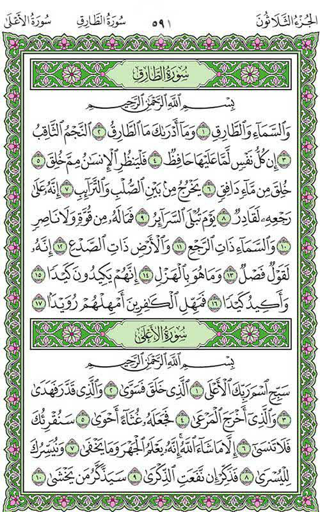 الجزء الثلاثون سورة الطارق ٥٩١ سورة الأعلى
سورة الطارق
بسم الله الرحمن الرحيم
والسماء والطارق ١ وما أدراك ما الطارق ٢ النجم الثاقب
٣ إن كل نفس لما عليها حافظ ٤ فلينظر الإنسان مم خلق ٥
خلق من ماء دافق ٦ يخرج من بين الصلب والترائب ٧ إنه على
رجعه لقادر ٨ يوم تبلى السرائر ٩ فما له من قوة ولا ناصر
١٠ والسماء ذات الرجع ١١ والأرض ذات الصدع ١٢ إنه
لقول فصل ١٣ وما هو بالهزل ١٤ إنهم يكيدون كيدا ١٥
وأكيد كيدا ١٦ فمهل الكافرين أمهلهم رويدا ١٧
سورة الأعلى
بسم الله الرحمن الرحيم
سبح اسم ربك الأعلى ١ الذي خلق فسوى ٢ والذي قدر فهدى
٣ والذي أخرج المرعى ٤ فجعله غثاء أحوى ٥ سنقرئك
فلا تنسى ٦ إلا ما شاء الله إنه يعلم الجهر وما يخفى ٧ ونيسرك
لليسرى ٨ فذكر إن نفعت الذكرى ٩ سيذكر من يخشى ١٠